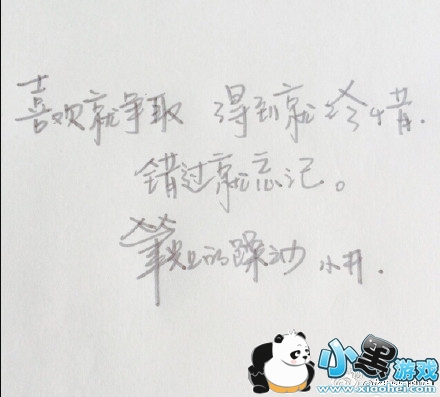 喜欢就争取 得到就珍惜.
错过就忘记。
笔尖上的躁动 小井.
小黑游戏
www.xiaohei.com